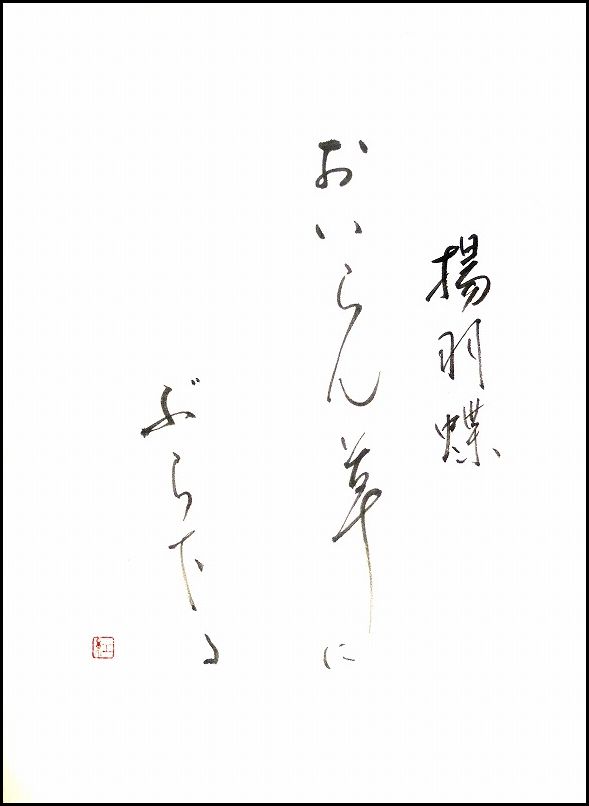 揚羽蝶
おいらん草に
ぶら下る
紅